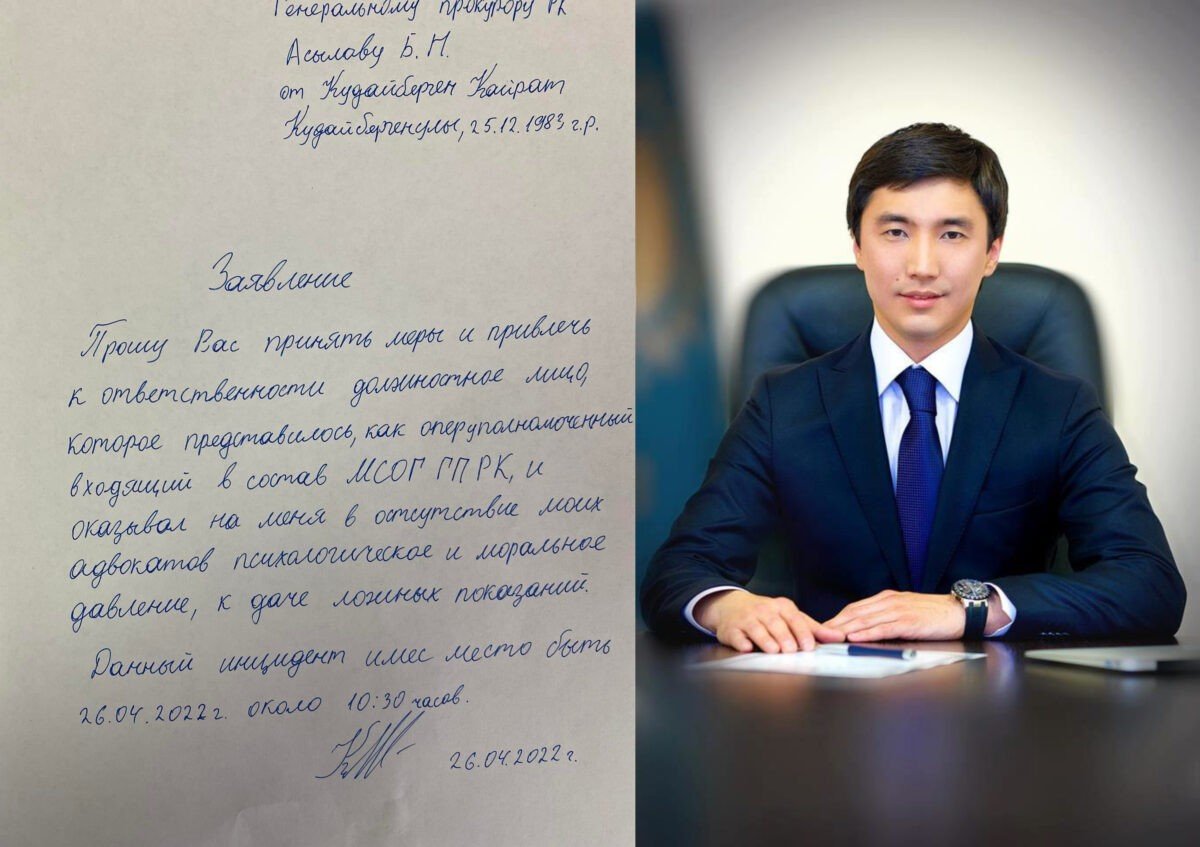 Генеральному прокурору РК
Асылову Б. Н.
от Кудайберген Кайрат
Кудайбергенулы, 25.12.1983 г.р.
Заявление
Прошу Вас принять меры и привлечь
к ответственности должностное лицо,
которое представилось, как оперуполномоченный
входящий в состав МСОГ ГП РК, и
оказывал на меня в отсутствие моих
адвокатов психологическое и моральное
давление, к даче ложных показаний.
Данный инцидент имес место быть
26.04.2022г. около 10:30 часов.
26.04.2022 г.